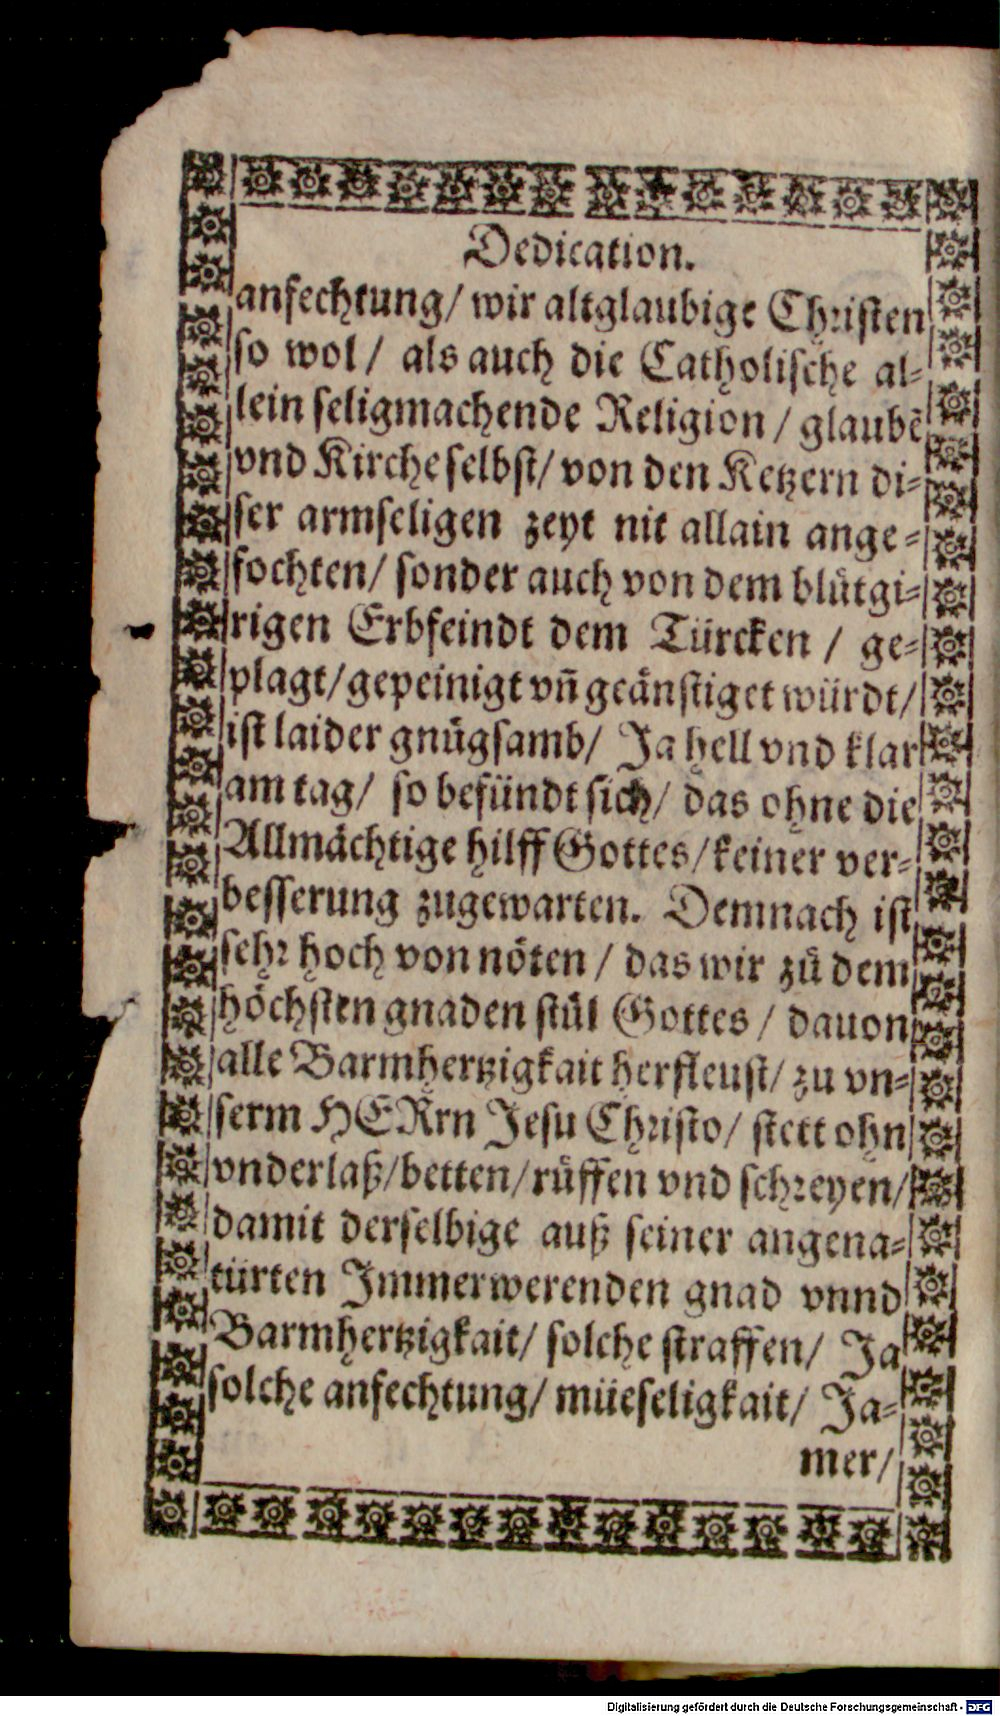 Dedication.
anfechtung/ wir altglaubige Christen
so wol/ als auch die Catholische al-
lein seligmachende Religion / glaubẽ
vnd Kirche selbst/ von den Ketzern di-
ser armseligen zeyt nit allain ange-
fochten/ sonder auch von dem blůtgi-
rigen Erbfeindt dem Türcken / ge-
plagt/ gepeinigt vñ geänstiget würdt/
ist laider gnůgsamb/ Ja hell vnd klar
am tag/ so befündt sich/ das ohne die
Allmächtige hilff Gottes/ keiner ver-
besserung zugewarten. Demnach ist
sehr hoch von nöten / das wir zů dem
höchsten gnaden stůl Gottes / dauon
alle Barmhertzigkait herfleust/ zu vn-
serm HERrn Jesu Christo/ stett ohn
vnderlaß/ betten/ růffen vnd schreyen/
damit derselbige auß seiner angena-
türten Immerwerenden gnad vnnd
Barmhertzigkait/ solche straffen/ Ja
solche anfechtung/ müeseligkait/ Ja-
mer/
Digitalisierung gefördert durch die Deutsche Forschungsgemeinschaft - DFG